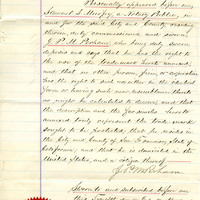 Personally appeared before me
Stewart S. Murfey, a Notary Public, in
and for the said City and County residing
therein, duly commissioned and sworn
who being duly sworn
deposes and says that he has the right to
the use of the trademark hereto annexed
and that no other person, firm or corporation
has the right to such use either in the identical
form or having such near resemblance thereto
as might be calculated to deceive and that
the description and the facsimile hereto
annexed truly represent the trade mark
sought to be protected, that he resides in
the City and County of San Francisco State of
California, and that he is domiciled in the
United States, and a citizen thereof
Sworn to and subscribed before me
this